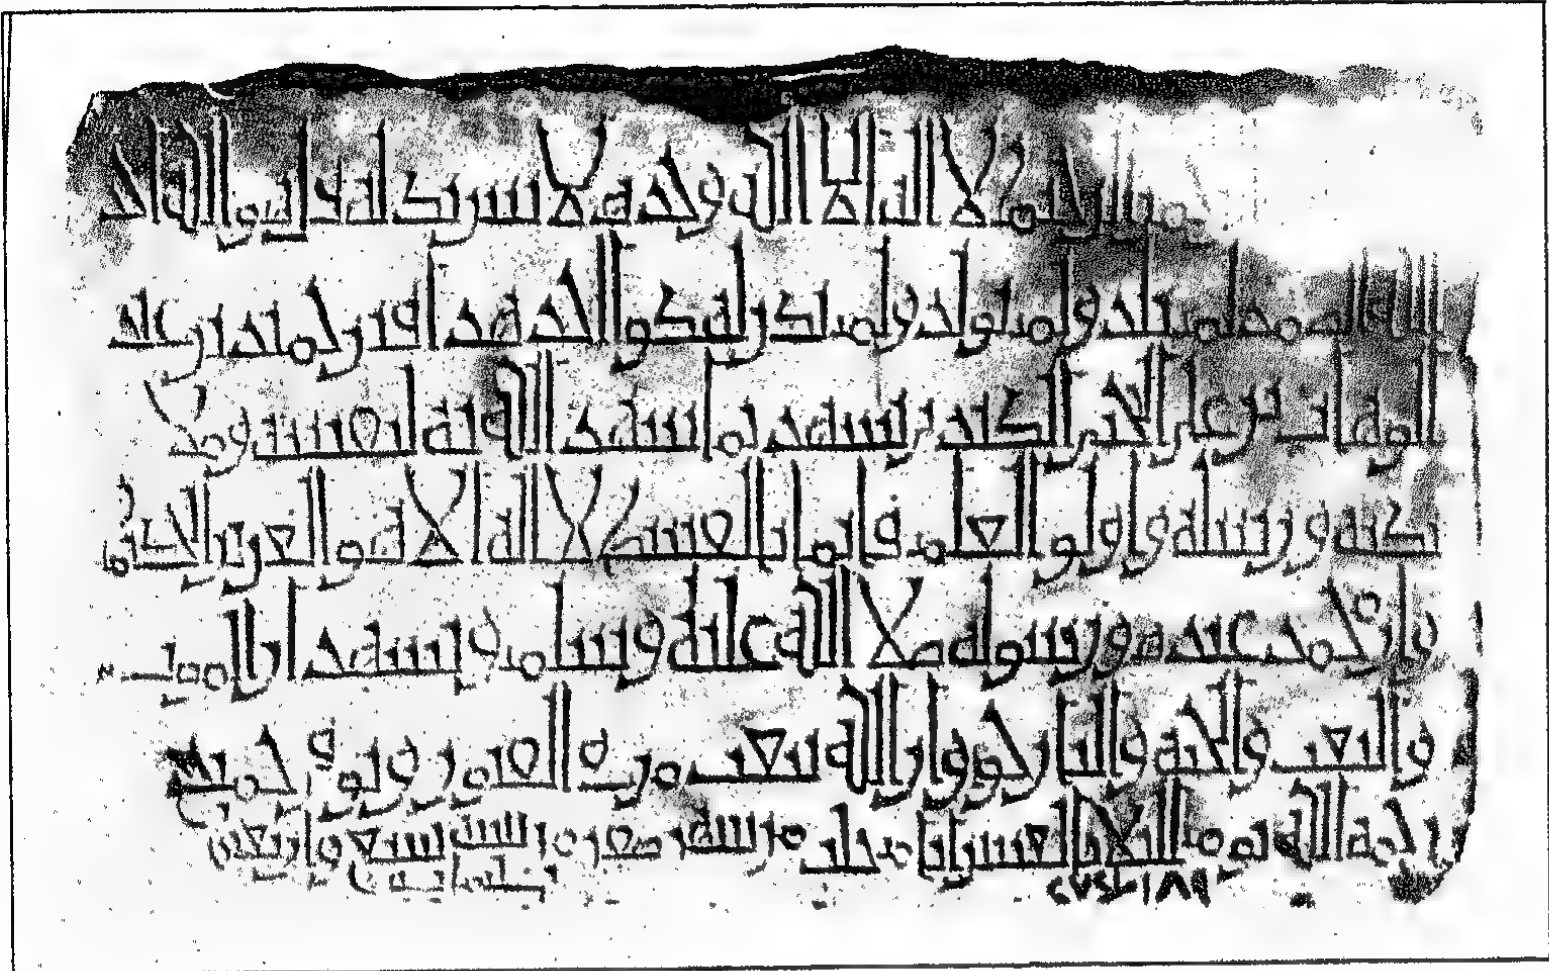 الرحيم لا اله الا الله وحده لا شريك له قل هو الله احد
الله الصمد لم يلد ولم يولد ولم يكن له كفوا احد هذا قبر محمد بن عبد
بن علي الكندي يشهد بما شهد الله به نفسه وملا
ئكته ورسله واولو العلم قائما بالقسط لا اله الا هو العزيز الحكيم
وان محمد عبده ورسوله صلا الله عليه وسلم ويشهد ان الموت
والبعث والجنة والنار حق وان الله يبعث من في القبور توفي محمد
رحمه الله يوم الثلاثا لعشر من شهر صفر من سنة تسع واربعين